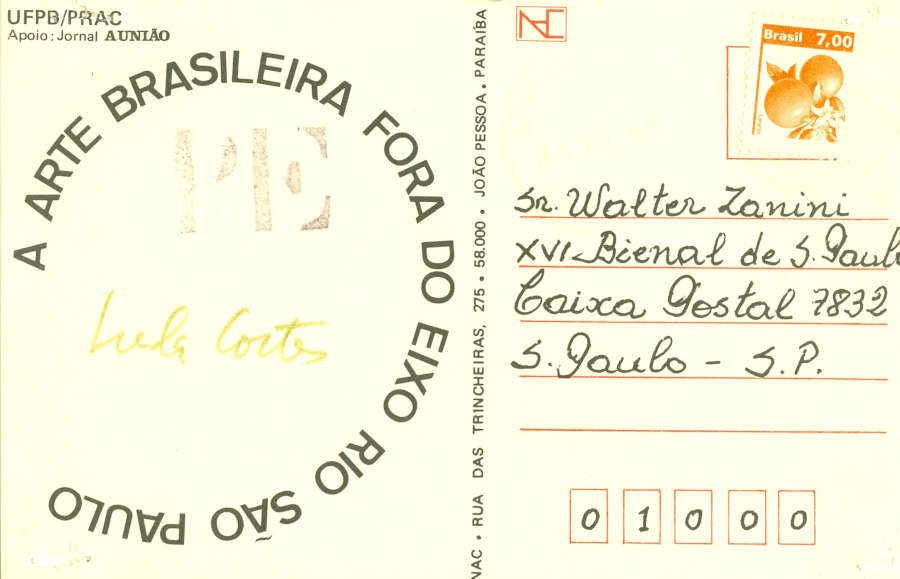 UFPB/PRAC
Apoio: Jornal A UNIÃO
A ARTE BRASILEIRA FORA DO EIXO RIO SÃO PAULO
PE
Lula Cortes
NAC • RUA DAS TRINCHEIRAS, 275 • 58.000 • JOÃO PESSOA • PARAÍBA
NAC
Brasil 7,00
Sr. Walter Zanini
XVI Bienal de S. Paulo
Caixa Postal 7832
S. Paulo - S.P.
0 1 0 0 0